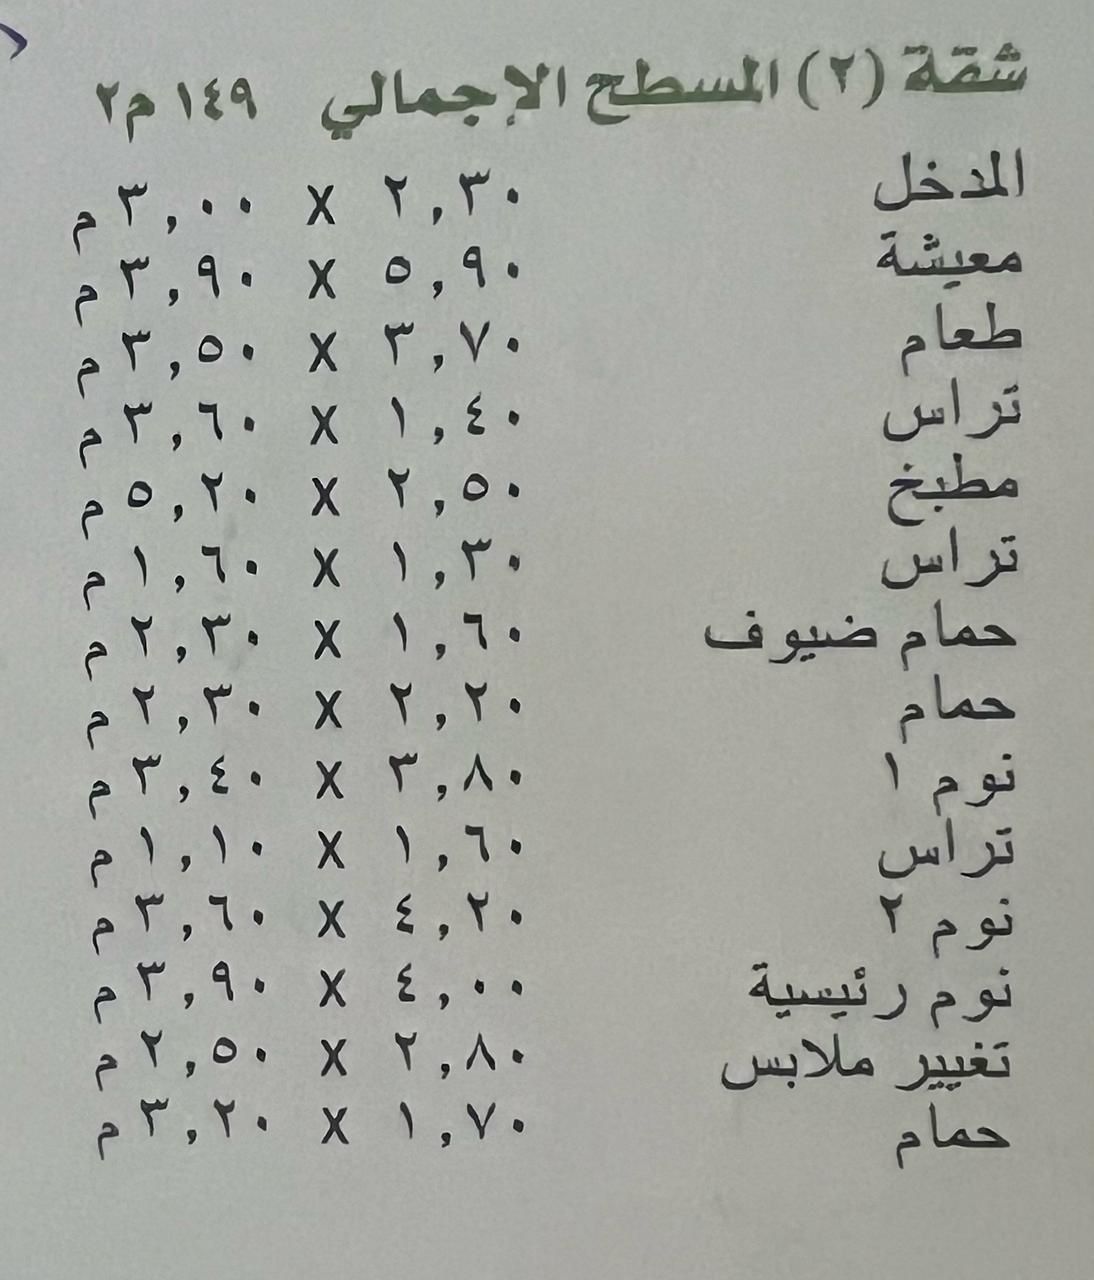 شقة (٢) المسطح الإجمالي ١٤٩ م٢
المدخل ٢,٣٠ X ٣,٠٠ م
معيشة ٥,٩٠ X ٣,٩٠ م
طعام ٣,٧٠ X ٣,٥٠ م
تراس ١,٤٠ X ٣,٦٠ م
مطبخ ٢,٥٠ X ٥,٢٠ م
تراس ١,٣٠ X ١,٦٠ م
حمام ضيوف ١,٦٠ X ٢,٣٠ م
حمام ٢,٢٠ X ٢,٣٠ م
نوم ١ ٣,٨٠ X ٣,٤٠ م
تراس ١,٦٠ X ١,١٠ م
نوم ٢ ٤,٢٠ X ٣,٦٠ م
نوم رئيسية ٤,٠٠ X ٣,٩٠ م
تغيير ملابس ٢,٨٠ X ٢,٥٠ م
حمام ١,٧٠ X ٣,٢٠ م